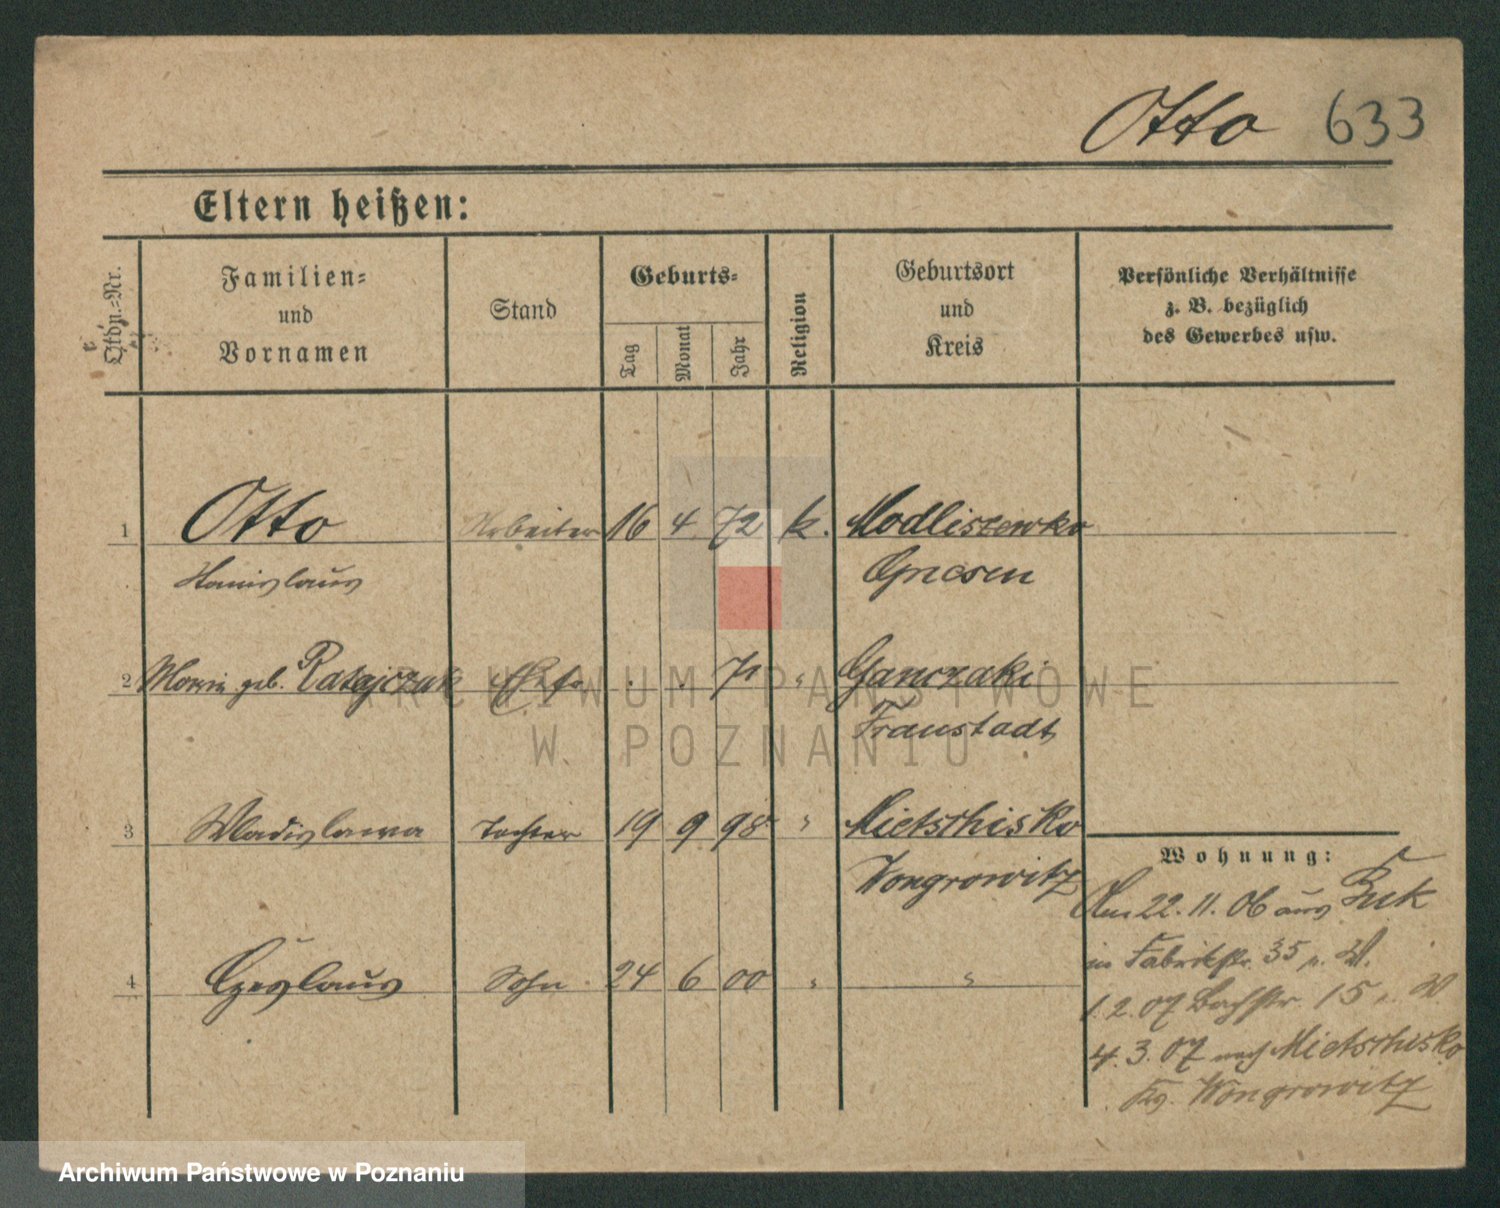 Otto 633
Eltern heißen:
Lfde.-Nr.
Familien-
und
Vornamen
Stand
Geburts-
Tag
Monat
Jahr
Religion
Geburtsort
und
Kreis
Persönliche Verhältnisse
z. B. bezüglich
des Gewerbes usw.
1 Otto Arbeiter 16 4. 72 k. Modliszewko
Stanislaus Gnesen
2 Maria geb. Ratajczak Ehefr. . . 71 " Ganczaki
Fraustadt
3 Wladislawa Tochter 19 9 98 " Mietschisko
Wongrowitz
4 Czeslaus Sohn 24 6 00 " "
Wohnung:
Am 22. 11. 06 aus Buk
in Fabrikstr. 35
1. 2. 07 Bachstr. 15
4. 3. 07 nach Mietschisko
Kr. Wongrowitz
ARCHIWUM PAŃSTWOWE
W POZNANIU
Archiwum Państwowe w Poznaniu